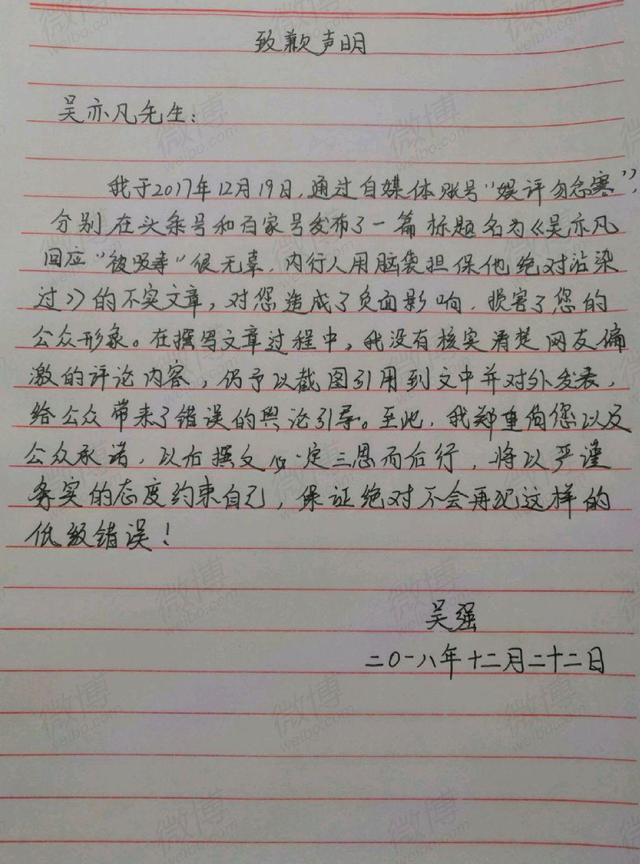 致歉声明
吴亦凡先生:
我于2017年12月19日,通过自媒体账号"娱评勿忽寒",
分别在头条号和百家号发布了一篇标题名为《吴亦凡
回应"被吸毒"很无辜,内行人用脑袋担保他绝对沾染
过》的不实文章,对您造成了负面影响,损害了您的
公众形象。在撰写文章过程中,我没有核实清楚网友偏
激的评论内容,仍予以截图引用到文中并对外发表,
给公众带来了错误的舆论引导。至此,我郑重向您以及
公众承诺,以后撰文必定三思而后行,将以严谨
务实的态度约束自己,保证绝对不会再犯这样的
低级错误!
吴强
二〇一八年十二月二十二日
微博
weibo.com